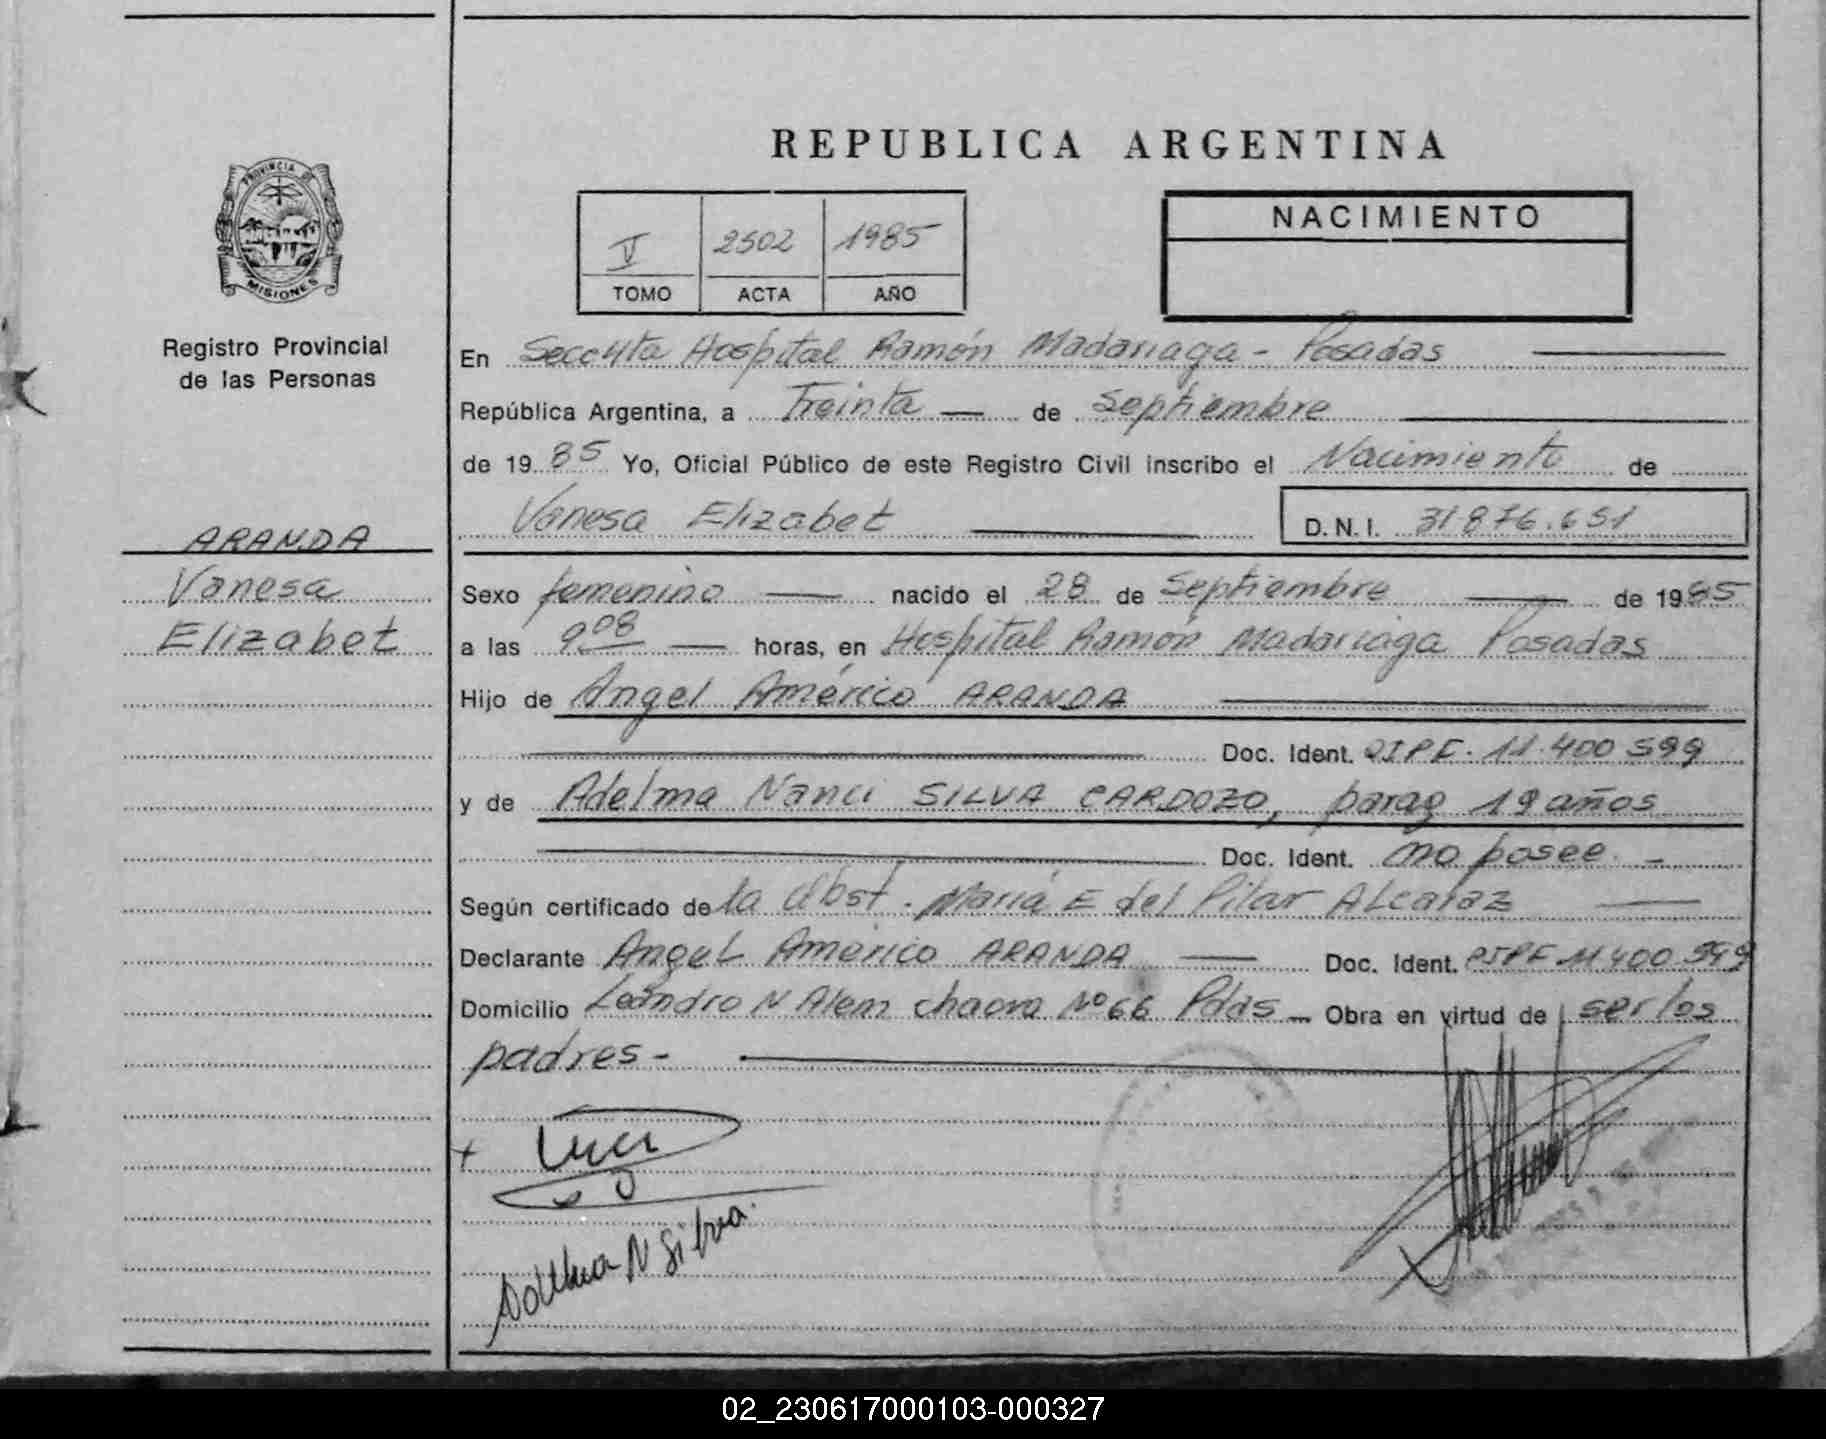 REPUBLICA ARGENTINA
PROVINCIA DE
MISIONES
Registro Provincial
de las Personas
V 2502 1985
TOMO ACTA AÑO
NACIMIENTO
En Secc 4ta Hospital Ramón Madariaga - Posadas
República Argentina, a Treinta — de Septiembre
de 19 85 Yo, Oficial Público de este Registro Civil inscribo el Nacimiento de
Vanesa Elizabet
D.N.I. 31876.651
ARANDA
Vanesa
Elizabet
Sexo femenino — nacido el 28 de Septiembre — de 1985
a las 9 08 — horas, en Hospital Ramón Madariaga Posadas
Hijo de Angel Américo ARANDA
Doc. Ident. 11.400 599
y de Adelma Nanci SILVA CARDOZO, parag 19 años
Doc. Ident. no posee. -
Según certificado de la Obst. María E del Pilar ALcaraz
Declarante AngeL Américo ARANDA — Doc. Ident. 11400 599
Domicilio Leandro N Alem chacra Nº 66 Pdas - Obra en virtud de ser los
padres-
Adelma N Silva.
02_230617000103-000327